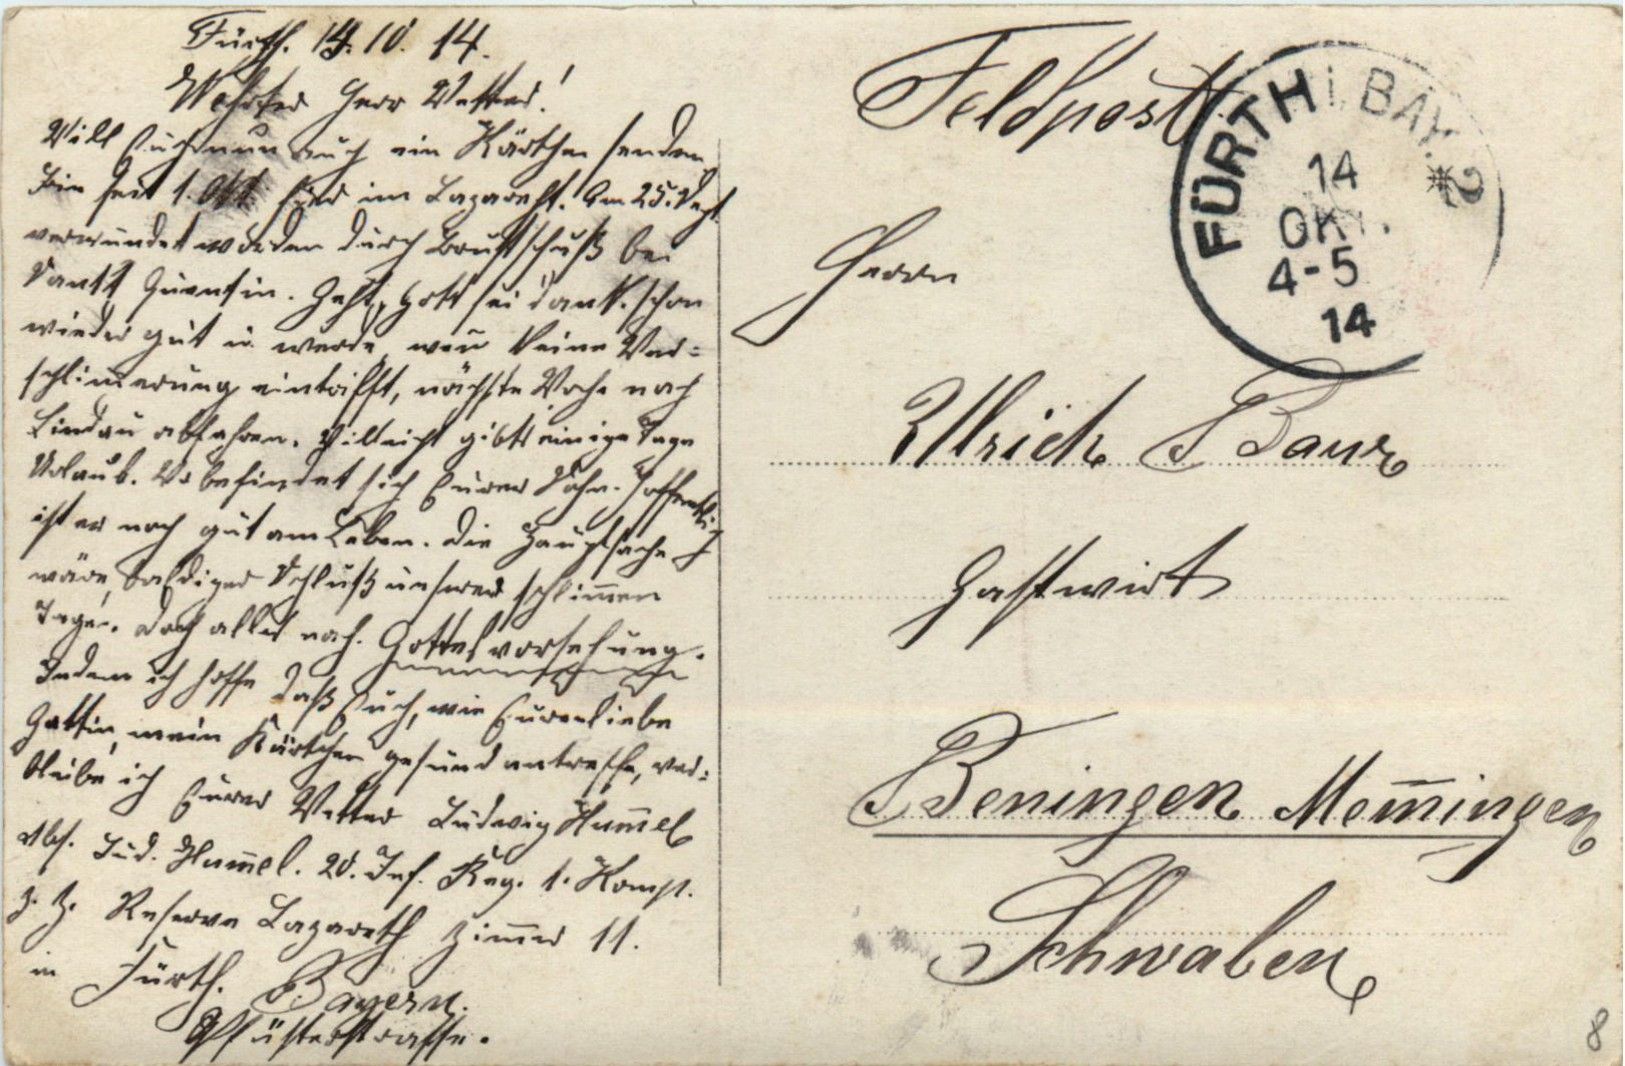 Fürth. 14. 10. 14.
Herr Vetter!
Will Euch nun auch ein Kärtchen senden
bin seit 1. Okt. hier im Lazareth. Am 25. Sept.
verwundet worden durch Brustschuß bei
Sankt Quentin. Geht, Gott sei Dank. schon
wieder gut u. werde, wen keine Ver=
schlim̅erung eintrifft, nächste Woche nach
Lindau abfahren. Villeicht gibts einige Tage
Urlaub. Wo befindet sich Eurer Sohn. Hoffentlich
ist er noch gut am Leben. Die Hauptsache
wäre, baldiger Schluß unsrer schlim̅en
Tage. Doch alles nach. Gottesvorsehung.
Indem ich hoffe daß Euch, wie Eure liebe
Gattin, mein Kärtchen gesund antreffe, ver=
bleibe ich Eurer Vetter Ludwig Hum̅el
Abs. Lud. Hum̅el. 20. Inf. Reg. 1. Komp.
z. Z. Reserve Lazareth Zim̅er 11.
in Fürth. Bayern.
Feldpost.
FÜRTH i. BAY. 2
14
OKT.
4-5
14
Herrn
Ullrich Baur
Gastwirt
Beningen Mem̅ingen
Schwaben
8